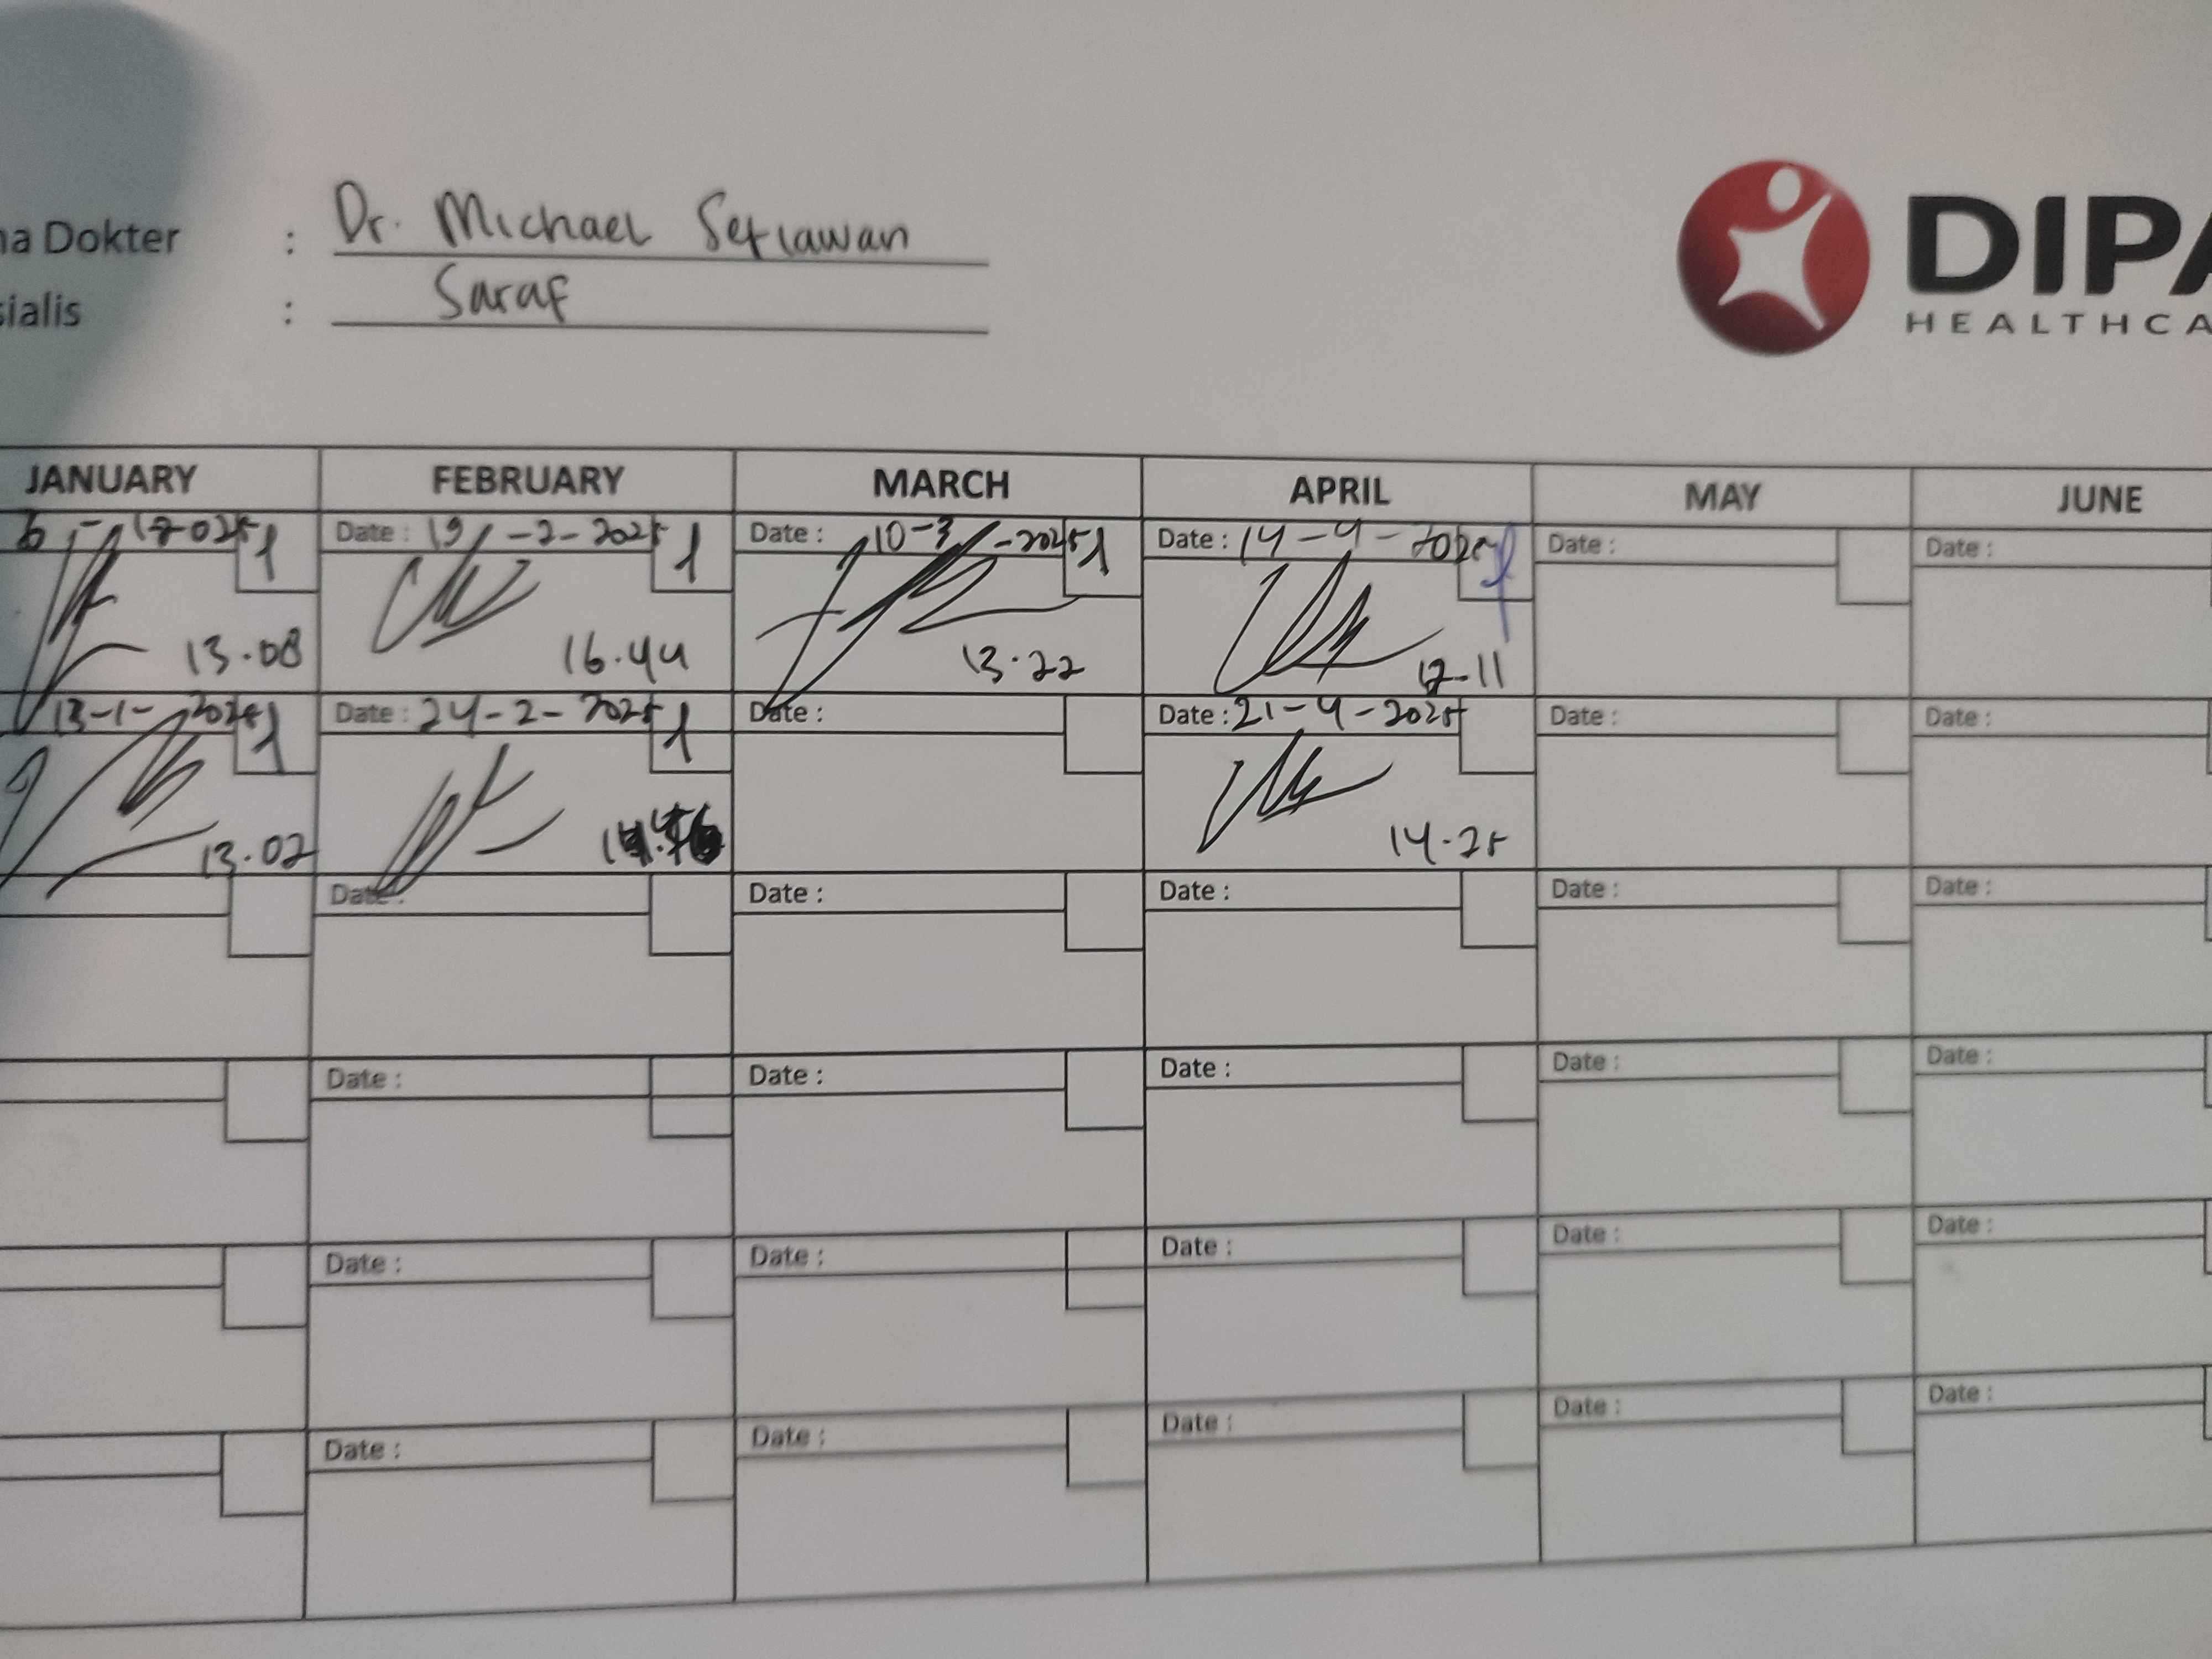 na Dokter : Dr. Michael Setiawan
sialis : Saraf
DIPA
HEALTHCA
JANUARY FEBRUARY MARCH APRIL MAY JUNE
6-1-2025 Date : 19-2-2025 Date : 10-3-2025 Date : 14-4-2025 Date : Date :
13.08 16.44 13.22 12.11
13-1-2025 Date : 24-2-2025 Date : Date : 21-4-2025 Date : Date :
13.02 14.25
Date : Date : Date : Date : Date :
Date : Date : Date : Date : Date :
Date : Date : Date : Date : Date :
Date : Date : Date : Date : Date :